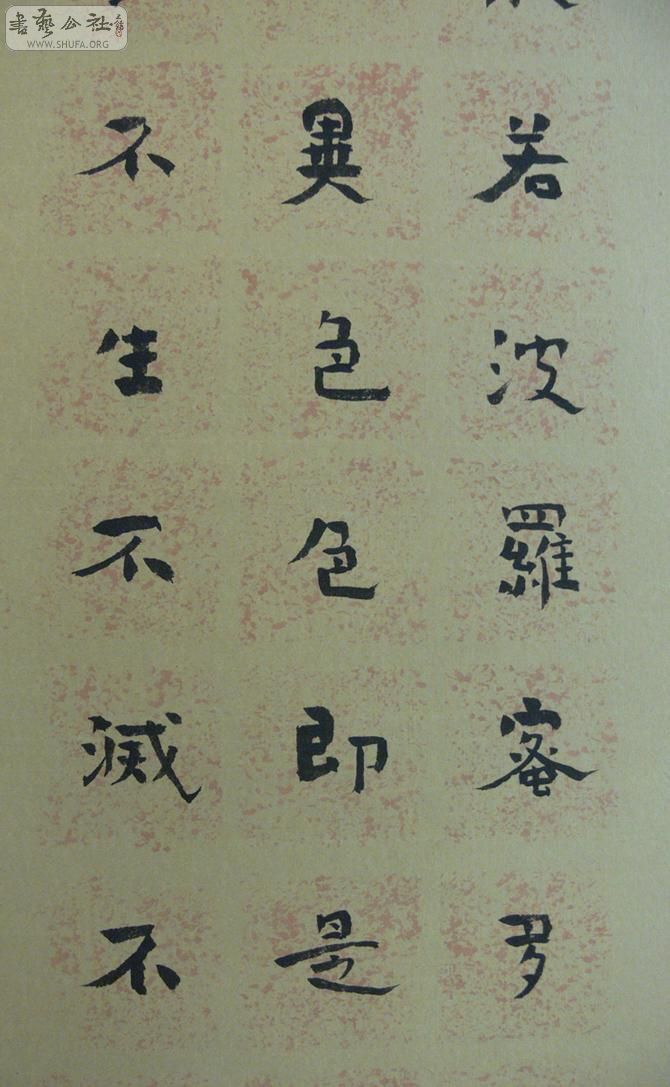 若波羅蜜多
異色色即是
不生不滅不
書藝公社
WWW.SHUFA.ORG